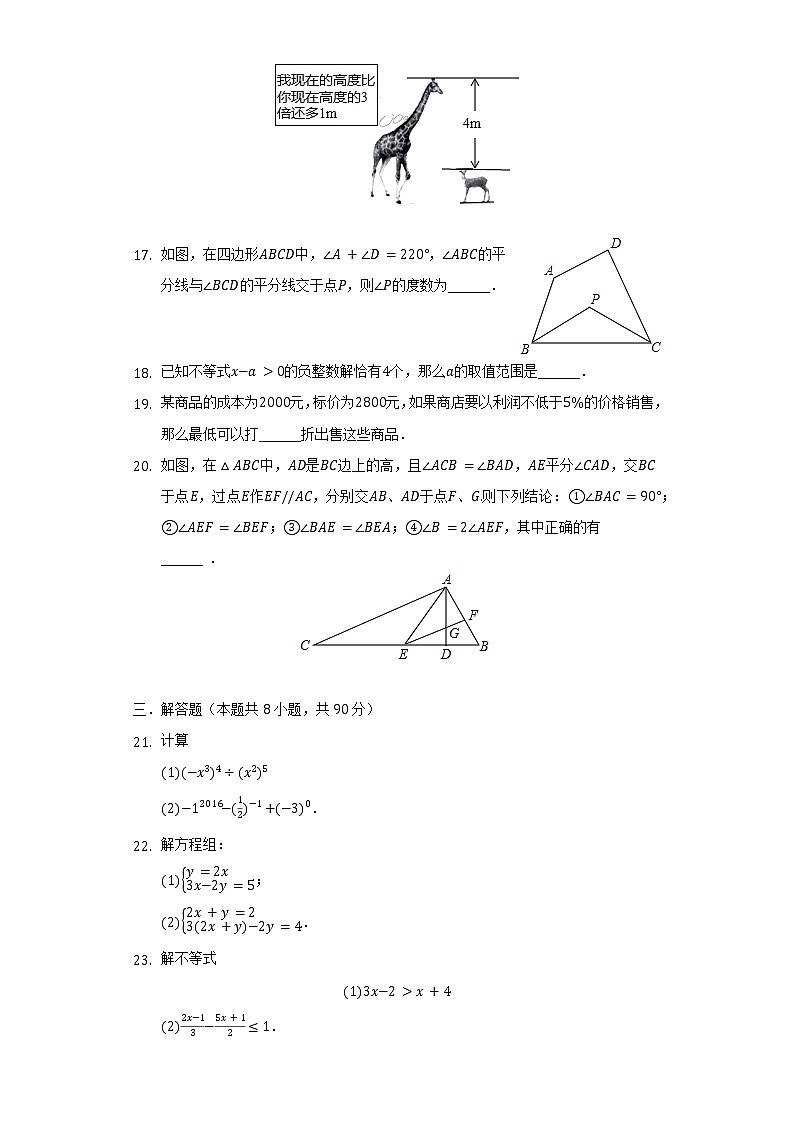 我现在的高度比
你现在高度的3
倍还多1m
4m
17. 如图,在四边形ABCD中,∠A+∠D=220°,∠ABC的平
分线与∠BCD的平分线交于点P,则∠P的度数为______.
D
A
P
B
C
18. 已知不等式x-a>0的负整数解恰有4个,那么a的取值范围是______.
19. 某商品的成本为2000元,标价为2800元,如果商店要以利润不低于5%的价格销售,
那么最低可以打______折出售这些商品.
20. 如图,在△ABC中,AD是BC边上的高,且∠ACB=∠BAD,AE平分∠CAD,交BC
于点E,过点E作EF//AC,分别交AB、AD于点F、G.则下列结论:①∠BAC=90°;
②∠AEF=∠BEF;③∠BAE=∠BEA;④∠B=2∠AEF,其中正确的有
______ .
A
F
G
C
E
D
B
三.解答题(本题共8小题,共90分)
21. 计算
(1)(-x³)⁴÷(x²)⁵
(2)-1²⁰¹⁶-(1/2)⁻¹+(-3)⁰.
22. 解方程组:
(1){y=2x
3x-2y=5;
(2){2x+y=2
3(2x+y)-2y=4.
23. 解不等式
(1)3x-2>x+4
(2)(2x-1)/3-(5x+1)/2≤1.